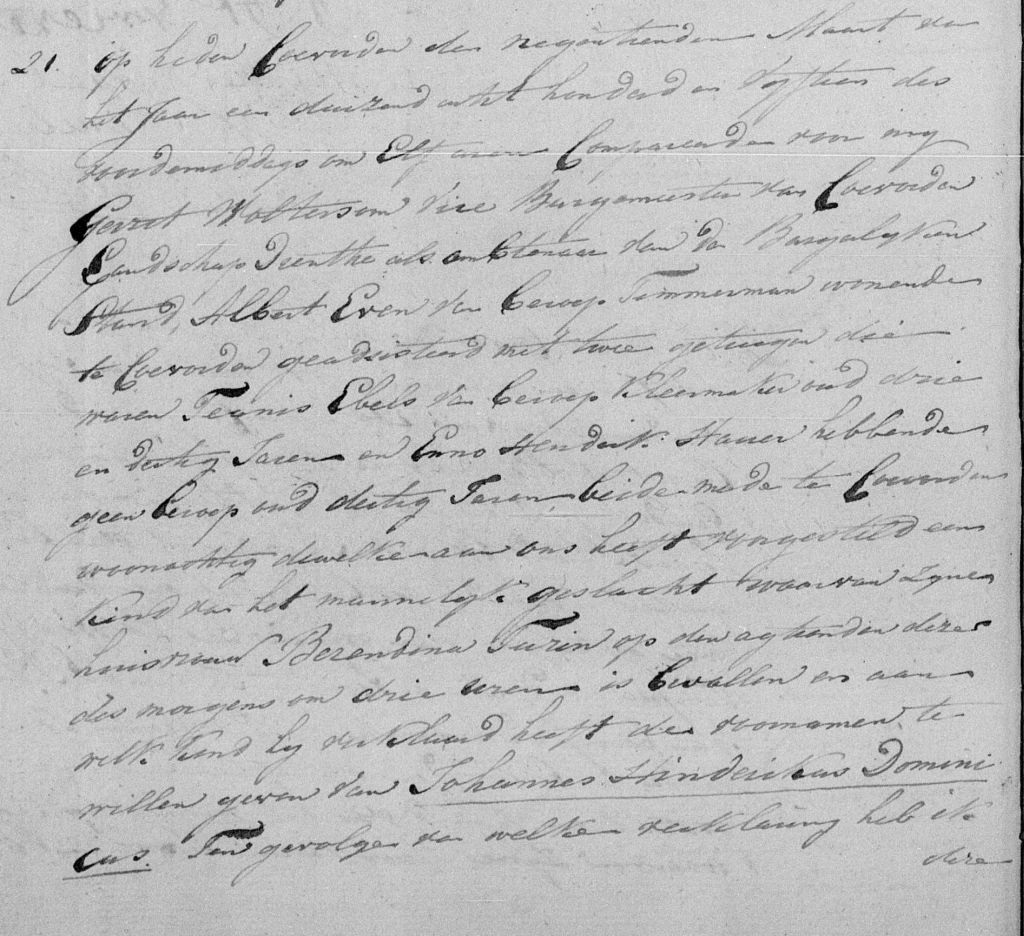 21. op heden Coevorden den negentienden Maart van
het Jaar een duizend acht honderd en vyftien des
voordemiddags om Elf uren Compareerde voor my
Gerrit Woltersom Vice Burgemeester van Coevorden
Landschap Drenthe als ambtenaar van den Burgelyken
Stand, Albert Even van beroep Timmerman wonende
te Coevorden geadsisteerd met twee getuigen die
waren Teunis Ebels van beroep Kleermaker oud drie
en dertig Jaren en Enno Hendrik Hauer hebbende
geen beroep oud dertig Jaren beide mede te Coevorden
woonachtig dewelke aan ons heeft voorgesteld een
kind van het mannelyk geslacht waarvan zyne
huisvrouw Berendina Turin op den agtienden dezer
des morgens om drie uren is bevallen en aan
welk kind hy verklaard heeft de voornamen te
willen geven van Johannes Hinderikus Domini
cus. Ten gevolge van welke verklaring heb ik
deze